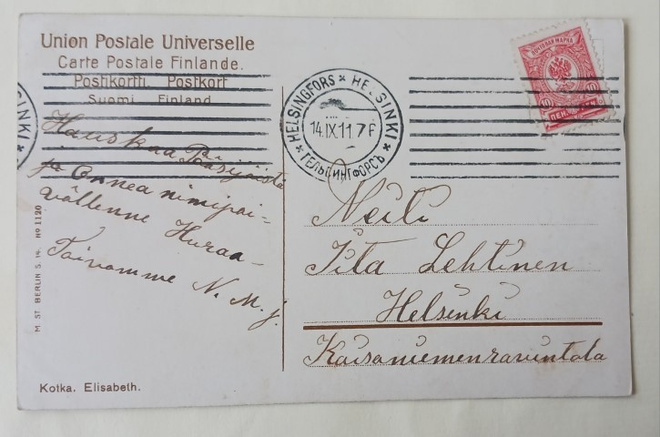 Union Postale Universelle
Carte Postale Finlande.
Postikortti. Postkort
Suomi Finland
HELSINGFORS * HELSINKI * ГЕЛЬСИНГФОРСЪ *
14.IX.11.7F
SINKI *
ПОЧТОВАЯ МАРКА
10 10
Hauskaa
ja Onnea nimipäi-
vällenne Huraa-
Toivomme N. M. J.
Neiti
Iita Lehtinen
Helsinki
Kaisaniemenravintola
M. ST. BERLIN S. 14. No 1120
Kotka. Elisabeth.